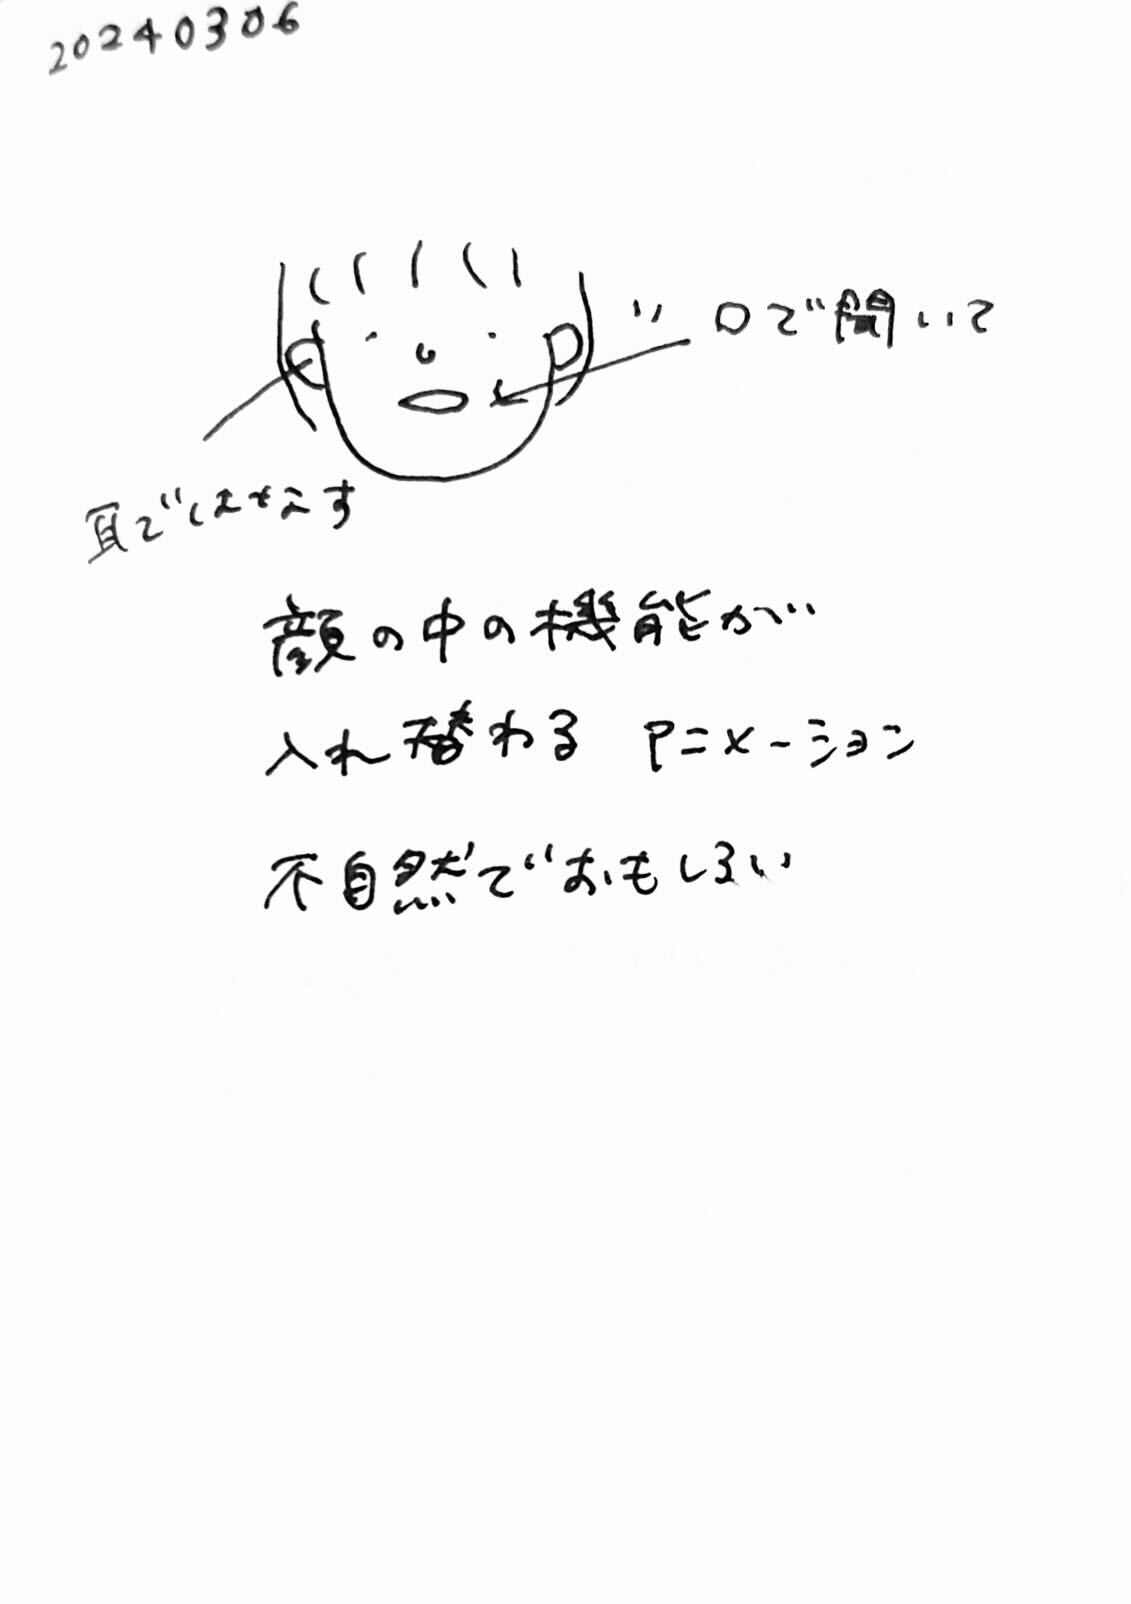 20240306
口で聞いて
耳では
顔の中の機能が
入れ替わる アニメーション
不自然でおもしろい